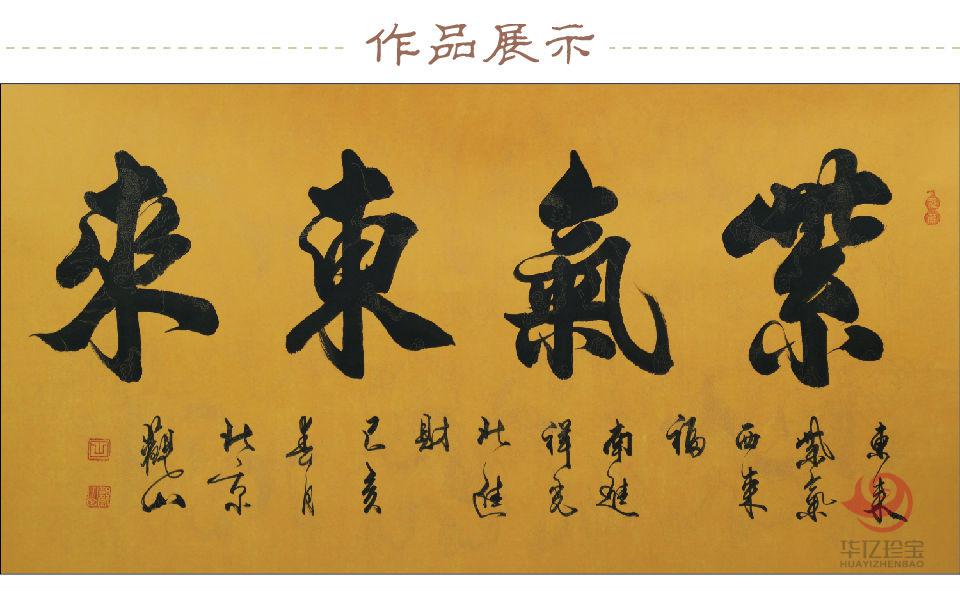 作品展示
紫氣東來
東来
紫氣
西来
福
南進
祥光
北進
財
己亥
春月
北京
觀山
华亿珍宝
HUAYIZHENBAO